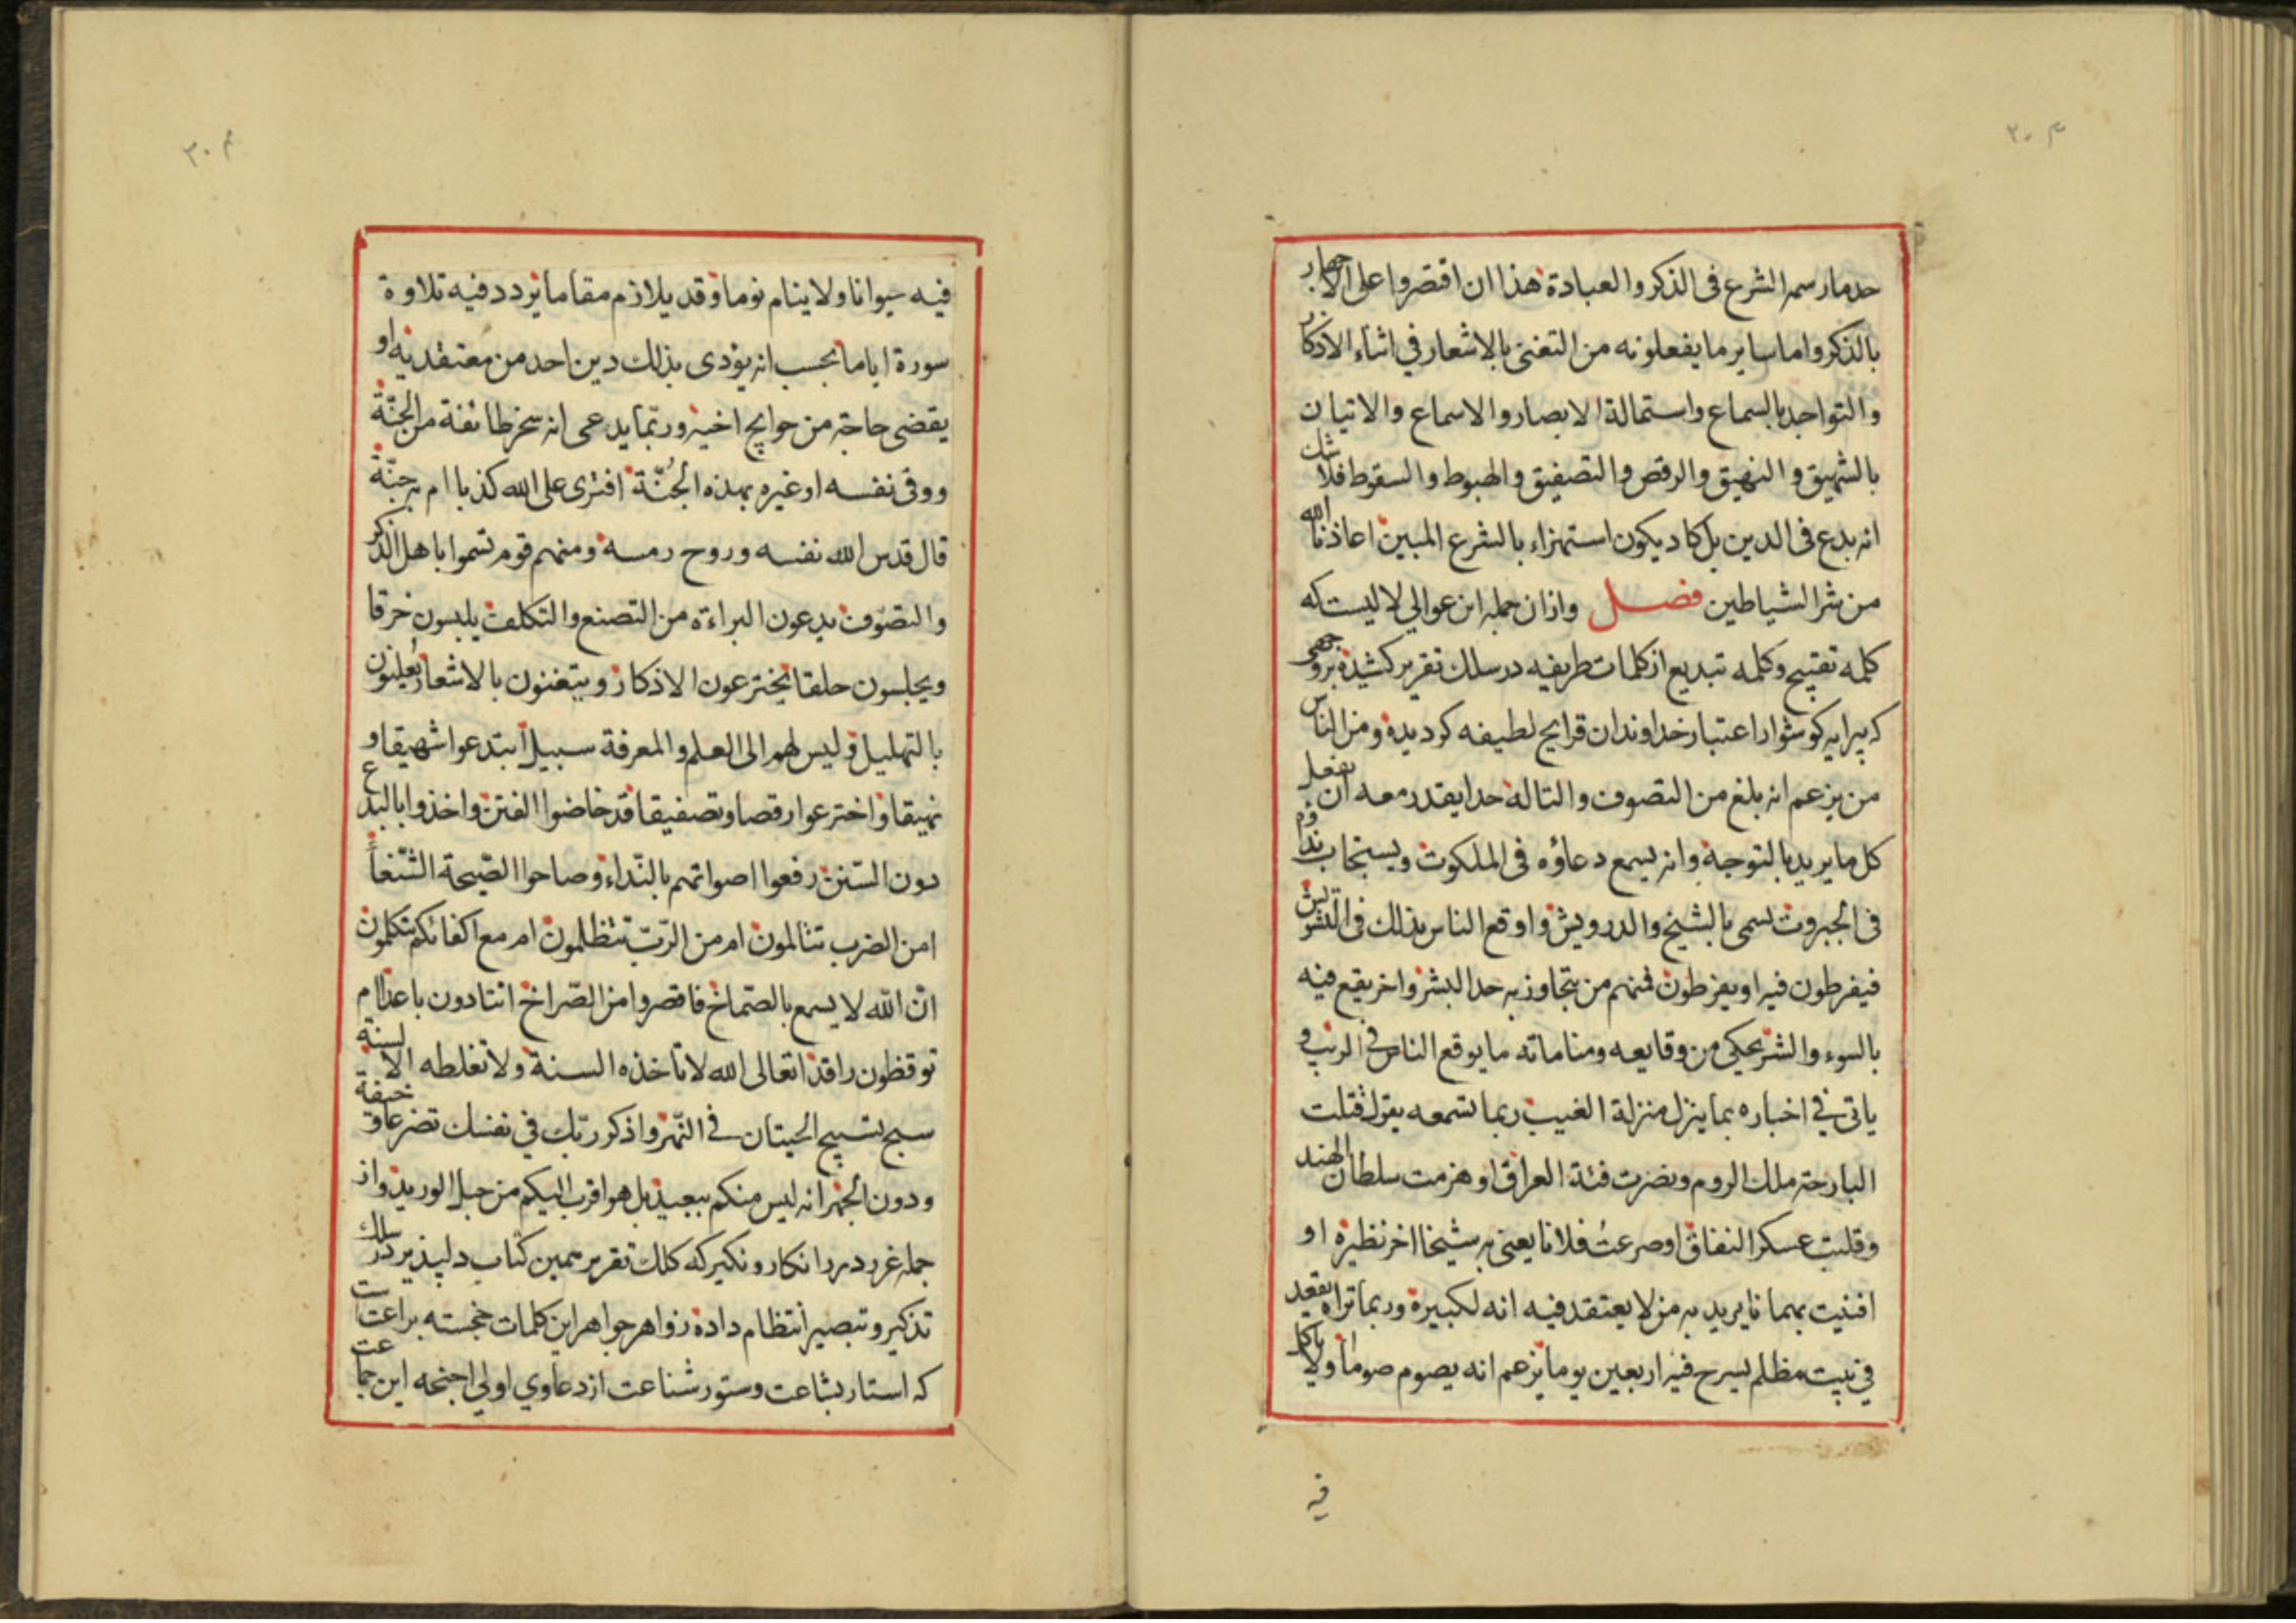 حد ما رسمه الشرع فى الذكر والعبادة هذا ان اقتصروا على الاجهار
بالذكر واما ساير ما يفعلونه من التغنى بالاشعار في اثناء الاذكار
والتواجد بالسماع واستمالة الابصار والاسماع والاتيان
بالشهيق والنهيق والرقص والتصفيق والهبوط والسقوط فلا شك
انه بدع فى الدين بل كاد يكون استهزاء بالشرع المبين اعاذنا الله
من شر الشياطين فصل وازان جمله اين عوالي لاليست كه
كلمه تقبيح وكلمه تبديع از كلمات طريفه در سلك تقرير كشيده بروجهى
كه پيرايه كوشوار اعتبار خداوندان قرايح لطيفه كرديده ومن الناس
من يزعم انه بلغ من التصوف والتاله حدا يقدر معه ان يفعل
كل ما يريد بالتوجه وانه يسمع دعاؤه فى الملكوت ويستجاب نداؤه
فى الجبروت تسمى بالشيخ والدرويش واوقع الناس بذلك فى التشويش
فيفرطون فيه او يفرطون فمنهم من يتجاوز به حد البشر واخر يقع فيه
بالسوء والشر يحكى من وقايعه ومناماته ما يوقع الناس فى الريب و
ياتى في اخباره بما ينزل منزلة الغيب ربما تسمعه يقول قتلت
البارحة ملك الروم ونصرت فئة العراق او هزمت سلطان الهند
وقلبت عسكر النفاق او صرعت فلانا يعنى به شيخا اخر نظيره او
افنيت بهمانا يريد به من لا يعتقد فيه انه لكبيرة وربما تراه يقعد
في بيت مظلم يسرج فيه اربعين يوما يزعم انه يصوم صوما ولا ياكل
فيه
فيه حيوانا ولا ينام نوما وقد يلازم مقاما يردد فيه تلاوة
سورة اياما يحسب انه يؤدى بذلك دين احد من معتقديه او
يقضى حاجة من حوايج اخيه وربّما يدعى انه سخر طائفة من الجنّة
ووقى نفسه او غيره بهذه الجُنّة افترى على الله كذبا ام به جنّة
قال قدس الله نفسه وروح رمسه ومنهم قوم تسموا باهل الذكر
والتصوّف يدعون البراءة من التصنع والتكلف يلبسون خرقا
ويجلسون حلقا يخترعون الاذكار ويتغنون بالاشعار يُعلنون
بالتهليل وليس لهم الى العلم والمعرفة سبيل ابتدعوا شهيقا و
نهيقا واخترعوا رقصا وتصفيقا قد خاضوا الفتن واخذوا بالبدع
دون السّنن رفعوا اصواتهم بالنّداء وصاحوا الصّيحة الشّنعاً
امن الضرب تتالمون ام من الرّبّ تتظلمون ام مع اكفائكم تتكلمون
انّ الله لا يسمع بالصّماخ فاقصروا من الصّراخ اتنادون باعدا ام
توقظون راقدا تعالى الله لا تاخذه السنة ولا تغلطه الالسنة
سبح تسبيح الحيتان في النّهر واذكر ربّك في نفسك تضرعا وخيفة
ودون الجهر انه ليس منكم ببعيد بل هو اقرب اليكم من حبل الوريد واز
جمله غرر درر انكار ونكير كه كلك تقرير همين كتاب دلپذير در سلك
تذكير وتبصير انتظام داده زواهر جواهر اين كلمات خجسته براعت است
كه استار بشاعت وستور شناعت از دعاوي اولي اجنحه اين جماعت